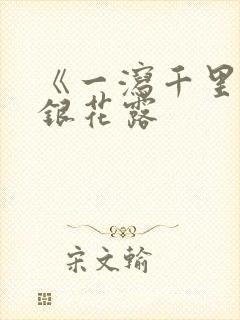 《一瀉千里
銀花露
宋文翰